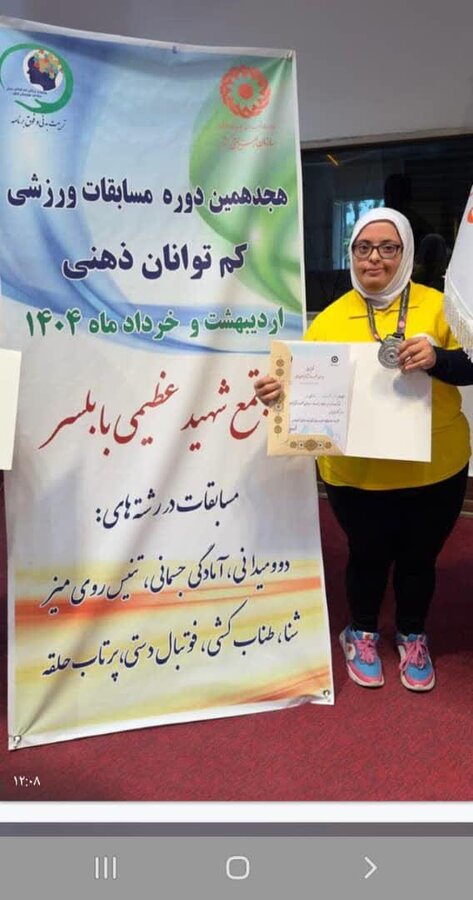 تربیت بدنی و فوق برنامه
هجدهمین دوره مسابقات ورزشی
کم توانان ذهنی
اردیبهشت و خرداد ماه ۱۴۰۴
مجتمع شهید عظیمی بابلسر
مسابقات در رشته های:
دوومیدانی، آمادگی جسمانی، تنیس روی میز
شنا، طناب کشی، فوتبال دستی، پرتاب حلقه
۱۲:۰۸